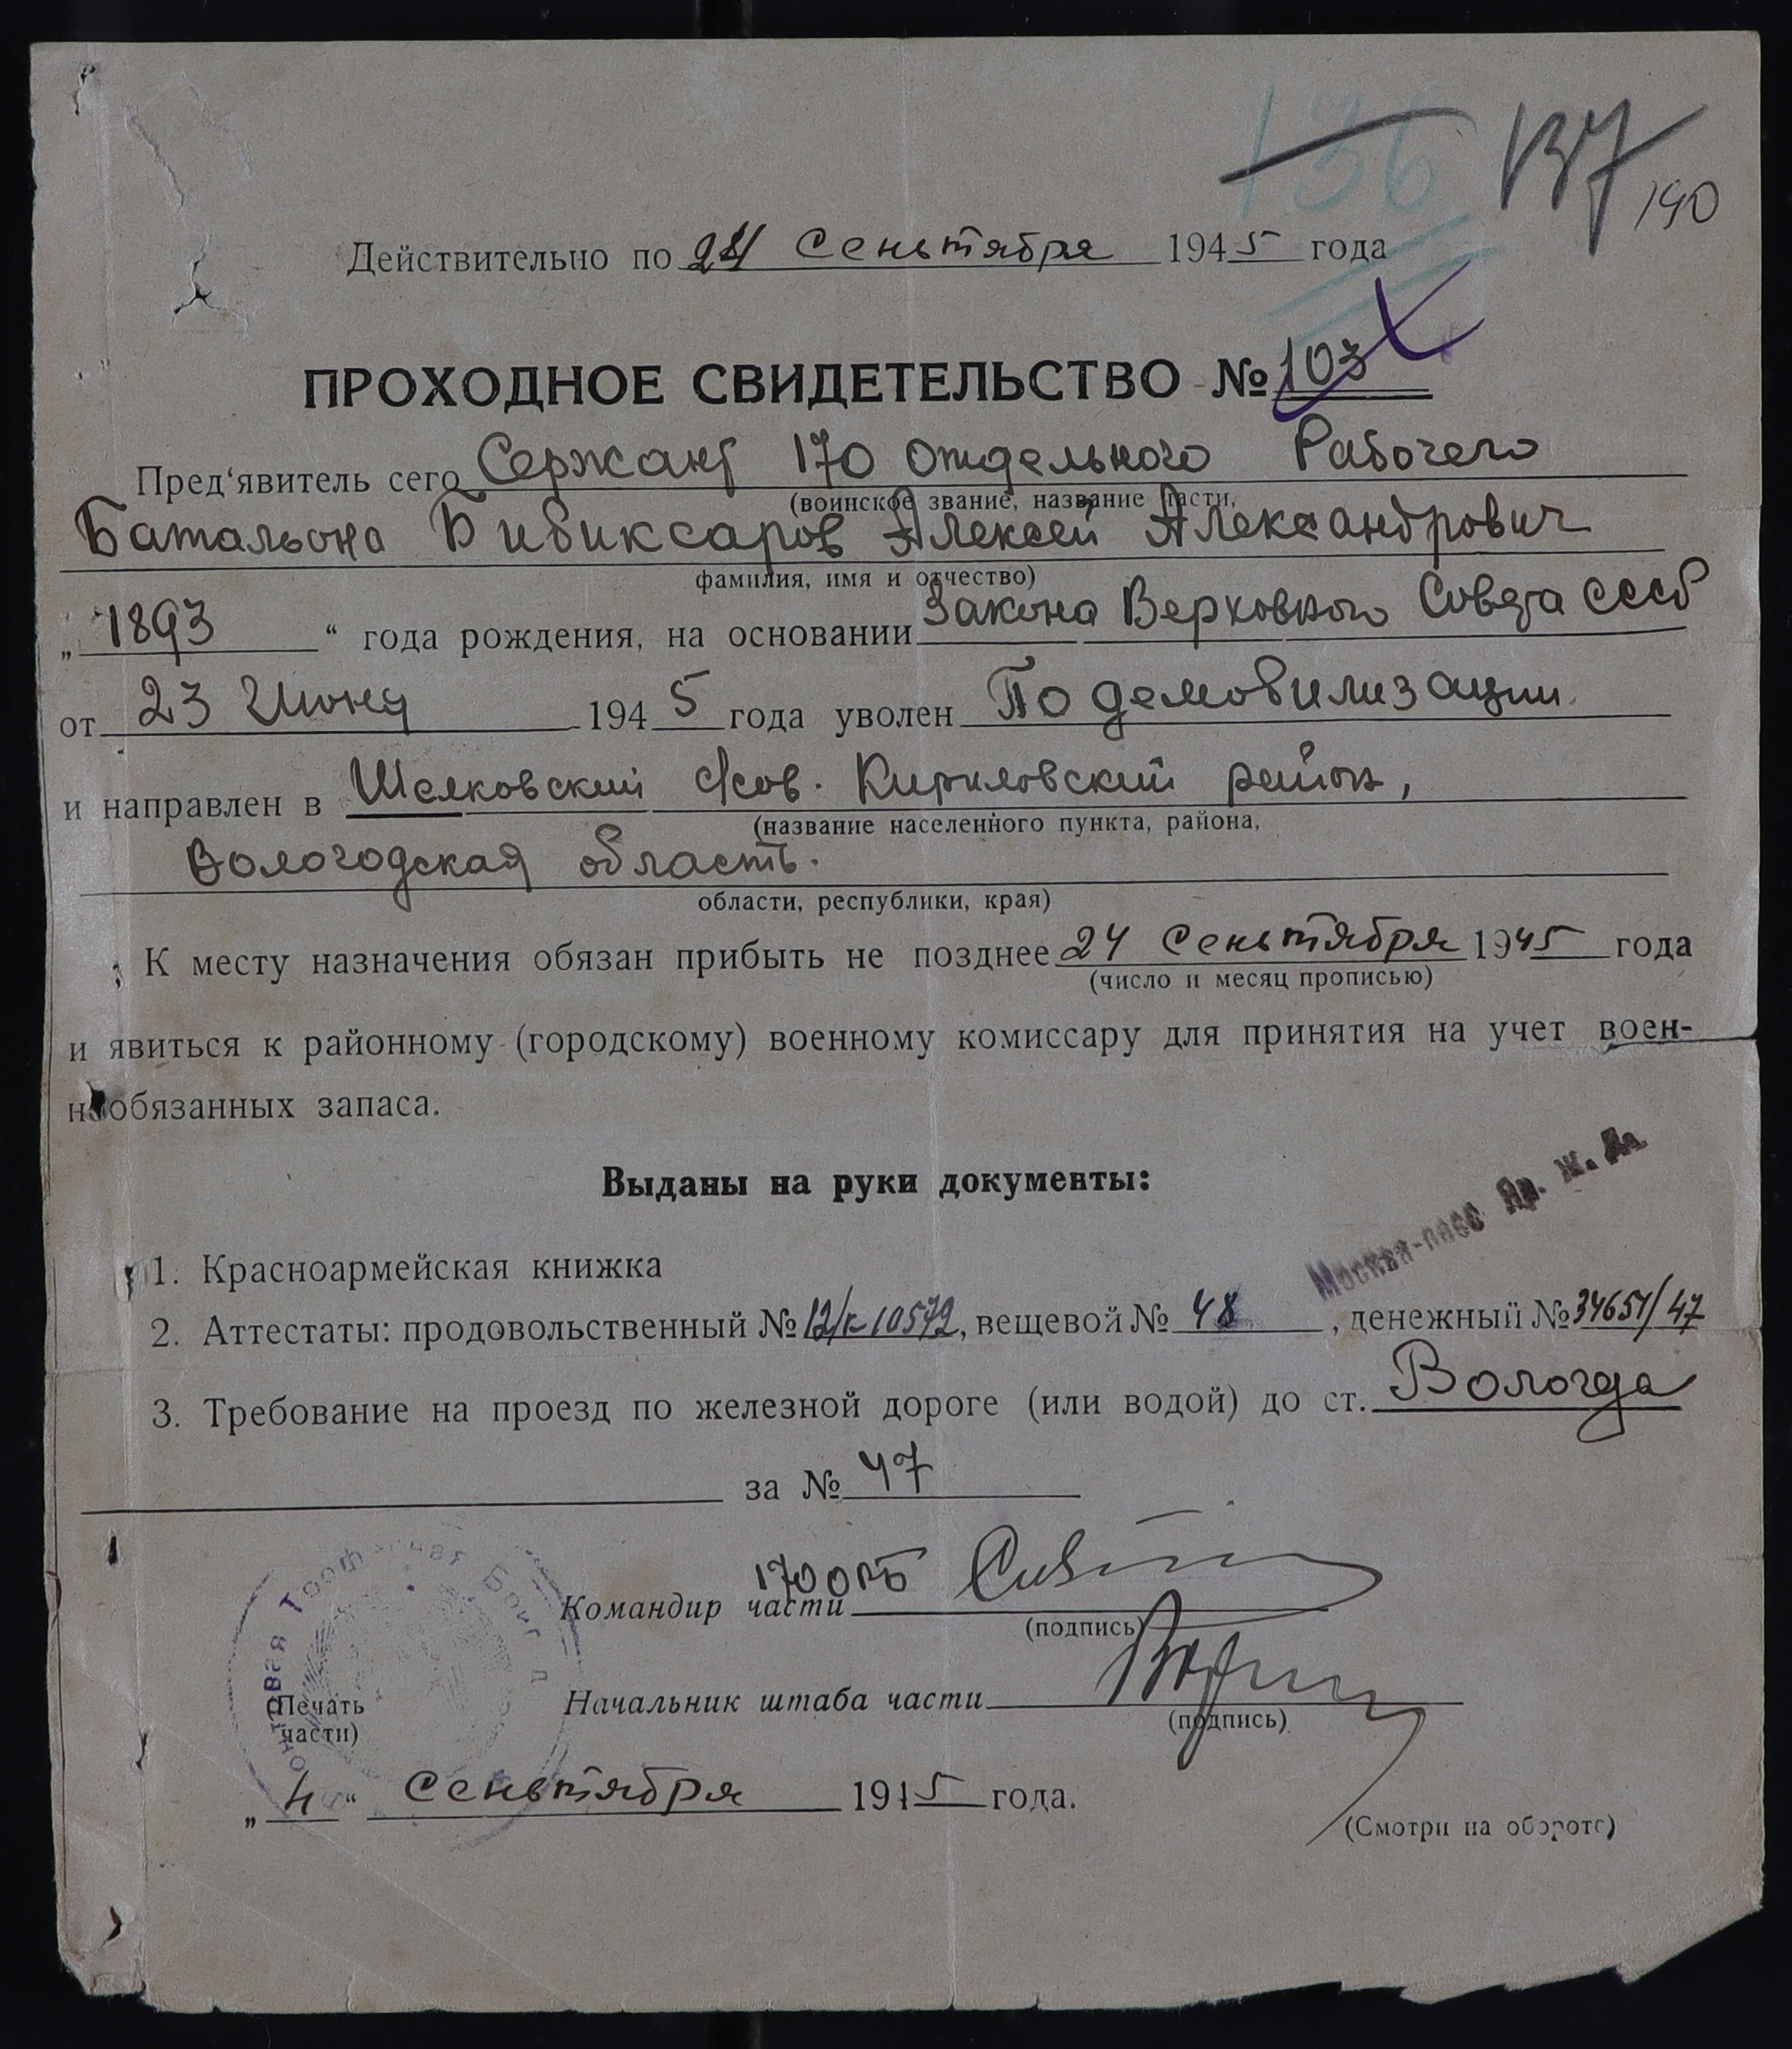 136 137
190
Действительно по 24 Сеньтября 1945 года
ПРОХОДНОЕ СВИДЕТЕЛЬСТВО № 103
Пред‘явитель сего Сержант 170 отдельного Рабочего
(воинское звание, название части,
Батальона Бибиксаров Алексей Александрович
фамилия, имя и отчество)
„ 1893 “ года рождения, на основании Закона Верховного Совета СССР
от 23 Июня 1945 года уволен По демобилизации.
и направлен в Шелковский с/сов. Кириловский район,
(название населенного пункта, района,
Вологодская область.
области, республики, края)
К месту назначения обязан прибыть не позднее 24 Сеньтября 1945 года
(число и месяц прописью)
и явиться к районному (городскому) военному комиссару для принятия на учет воен-
нообязанных запаса.
Выданы на руки документы:
Москва-пасс Яр. ж. д.
1. Красноармейская книжка
2. Аттестаты: продовольственный № 12/к 10572, вещевой № 48, денежный № 34651/47
3. Требование на проезд по железной дороге (или водой) до ст. Вологда
за № 47
170 орб
Командир части
(подпись)
Начальник штаба части
(подпись)
(Печать
части)
Трофейная Бригада
„ 4 “ Сеньтября 1945 года.
(Смотри на обороте)